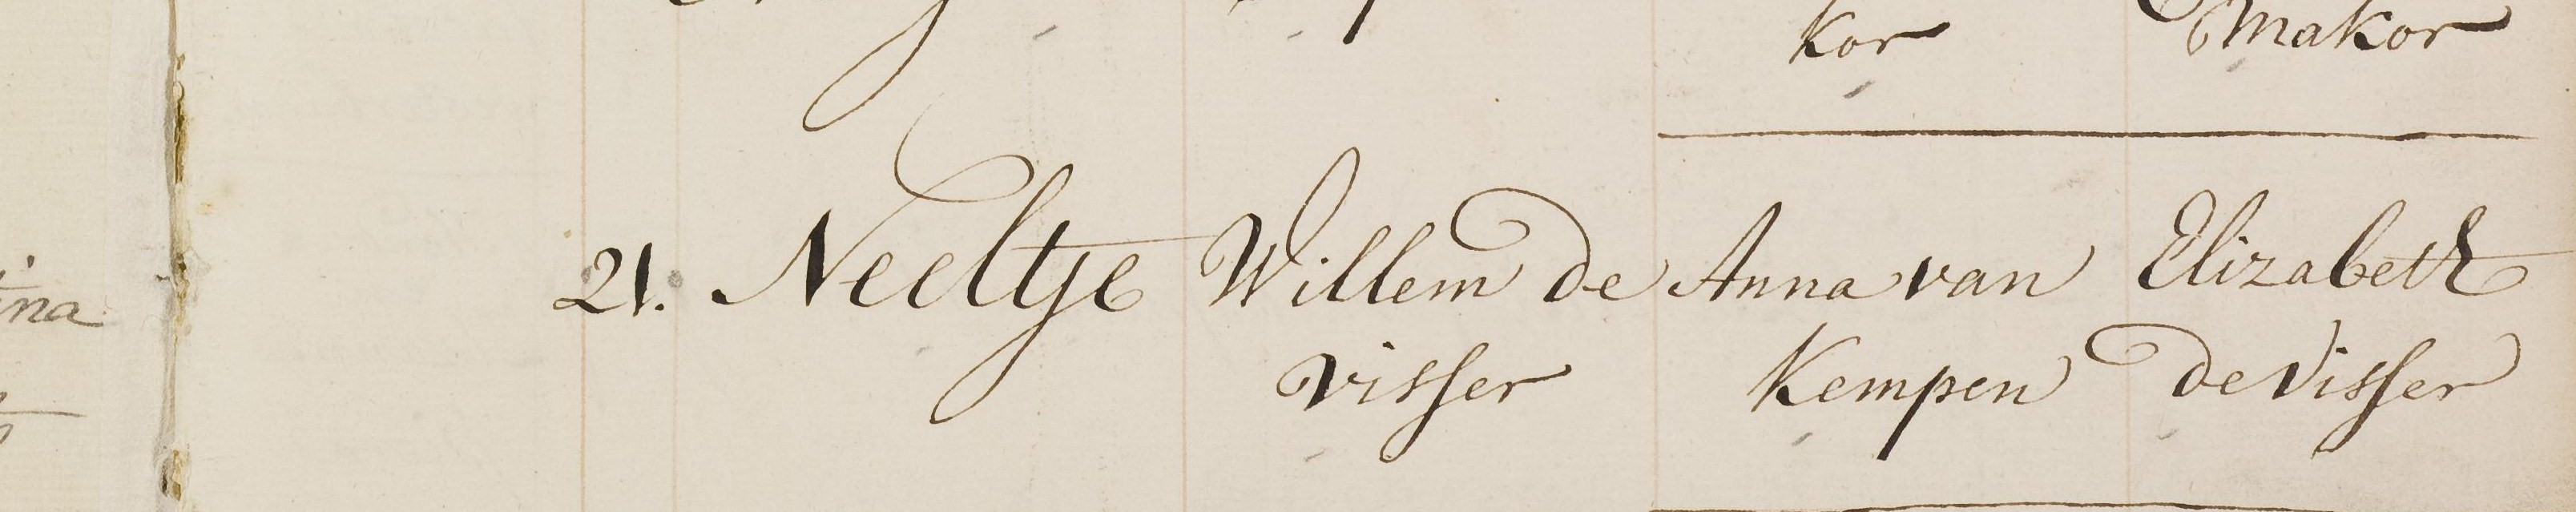 kor makor
ina
21. Neeltje Willem de Anna van Elizabeth
visser Kempen de Visser